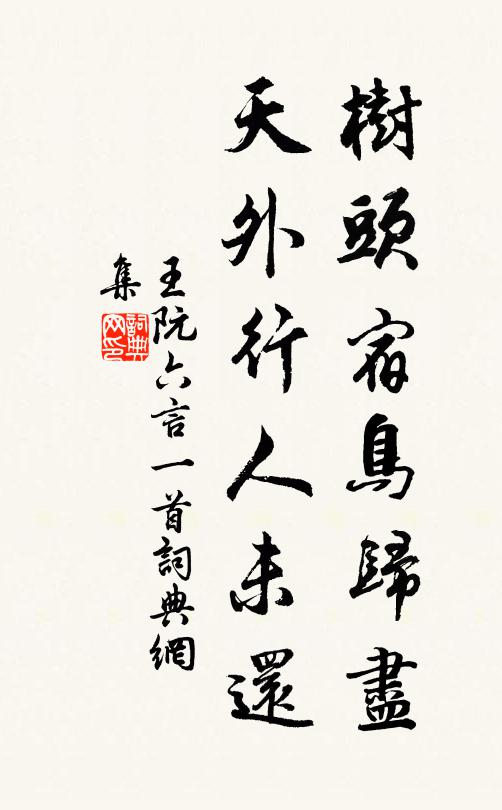 樹頭宿鳥歸盡
天外行人未還
王阮六言一首詞典網
集
詞典
网印